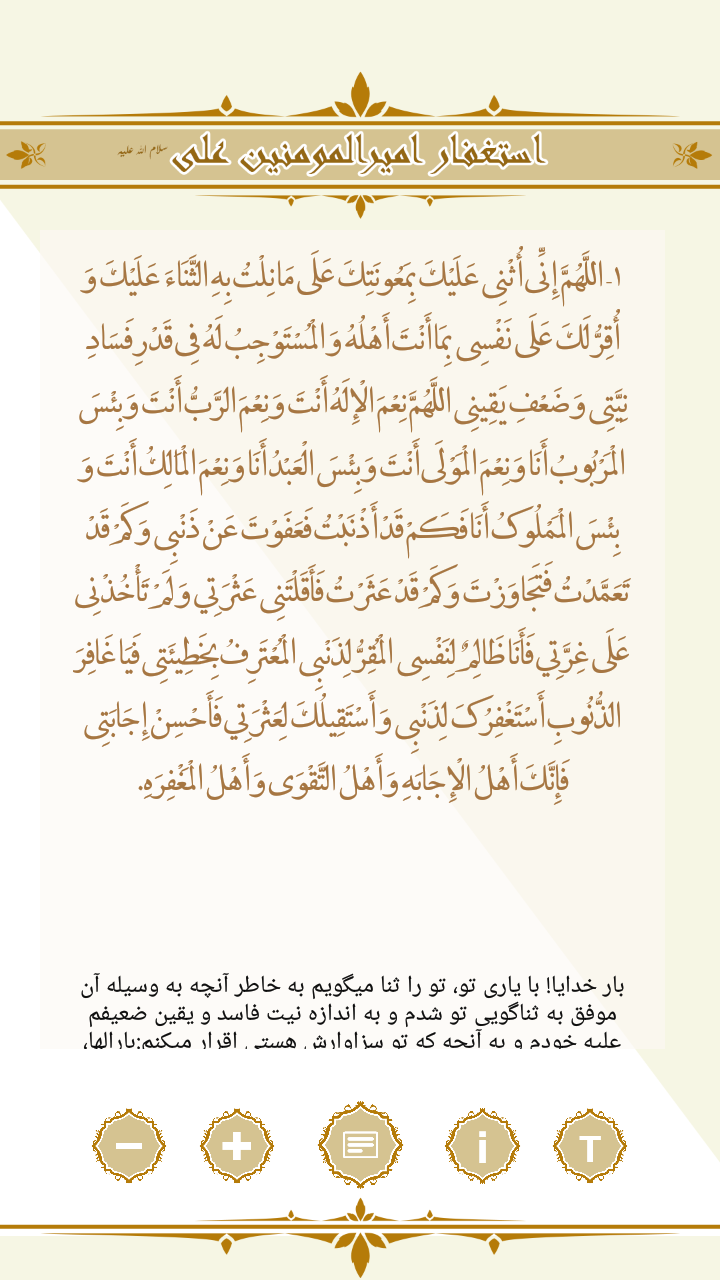 استغفار امیرالمومنین علی سلام الله علیه
۱-اللَّهُمَّ إِنِّی أُثْنِی عَلَیْکَ بِمَعُونَتِکَ عَلَی مَا نِلْتُ بِهِ الثَّنَاءَ عَلَیْکَ وَ
أُقِرُّ لَکَ عَلَی نَفْسِی بِمَا أَنْتَ أَهْلُهُ وَ الْمُسْتَوْجِبُ لَهُ فِی قَدْرِ فَسَادِ
نِیَّتِی وَ ضَعْفِ یَقِینِی اللَّهُمَّ نِعْمَ الْإِلَهُ أَنْتَ وَ نِعْمَ الرَّبُّ أَنْتَ وَ بِئْسَ
الْمَرْبُوبُ أَنَا وَ نِعْمَ الْمَوْلَی أَنْتَ وَ بِئْسَ الْعَبْدُ أَنَا وَ نِعْمَ الْمَالِکُ أَنْتَ وَ
بِئْسَ الْمَمْلُوکُ أَنَا فَکَمْ قَدْ أَذْنَبْتُ فَعَفَوْتَ عَنْ ذَنْبِی وَ کَمْ قَدْ
تَعَمَّدْتُ فَتَجَاوَزْتَ وَ کَمْ قَدْ عَثَرْتُ فَأَقَلْتَنِی عَثْرَتِي وَ لَمْ تَأْخُذْنِی
عَلَی غِرَّتِي فَأَنَا ظَالِمٌ لِنَفْسِی الْمُقِرُّ لِذَنْبِی الْمُعْتَرِفُ بِخَطِیئَتِی فَیَا غَافِرَ
الذُّنُوبِ أَسْتَغْفِرُکَ لِذَنْبِی وَ أَسْتَقِیلُکَ لِعَثْرَتِي فَأَحْسِنْ إِجَابَتِی
فَإِنَّکَ أَهْلُ الْإِجَابَهِ وَ أَهْلُ التَّقْوَی وَ أَهْلُ الْمَغْفِرَهِ.
بار خدایا! با یاری تو، تو را ثنا میگویم به خاطر آنچه به وسیله آن
موفق به ثناگویی تو شدم و به اندازه نیت فاسد و یقین ضعیفم
علیه خودم و به آنچه که تو سزاوارش هستی اقرار میکنم:بارالها،
T